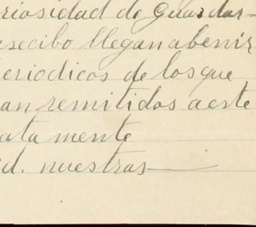 riosidad de Guardar
recibo llegan abenir
periodicos de los que
an remitidos a este
ata mente
ud. nuestras